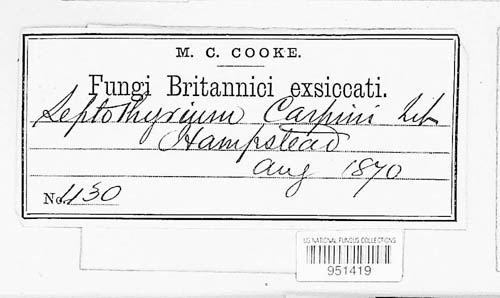 M. C. COOKE.
Fungi Britannici exsiccati.
Leptothyrium Carpini Lib
Hampstead
Aug 1870
No. 430
US NATIONAL FUNGUS COLLECTIONS
951419